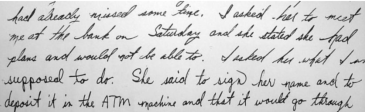 had already missed some time. I asked her to meet
me at the bank on Saturday and she stated she had
plans and would not be able to. I asked her what I was
supposed to do. She said to sign her name and to
deposit it in the ATM machine and that it would go through